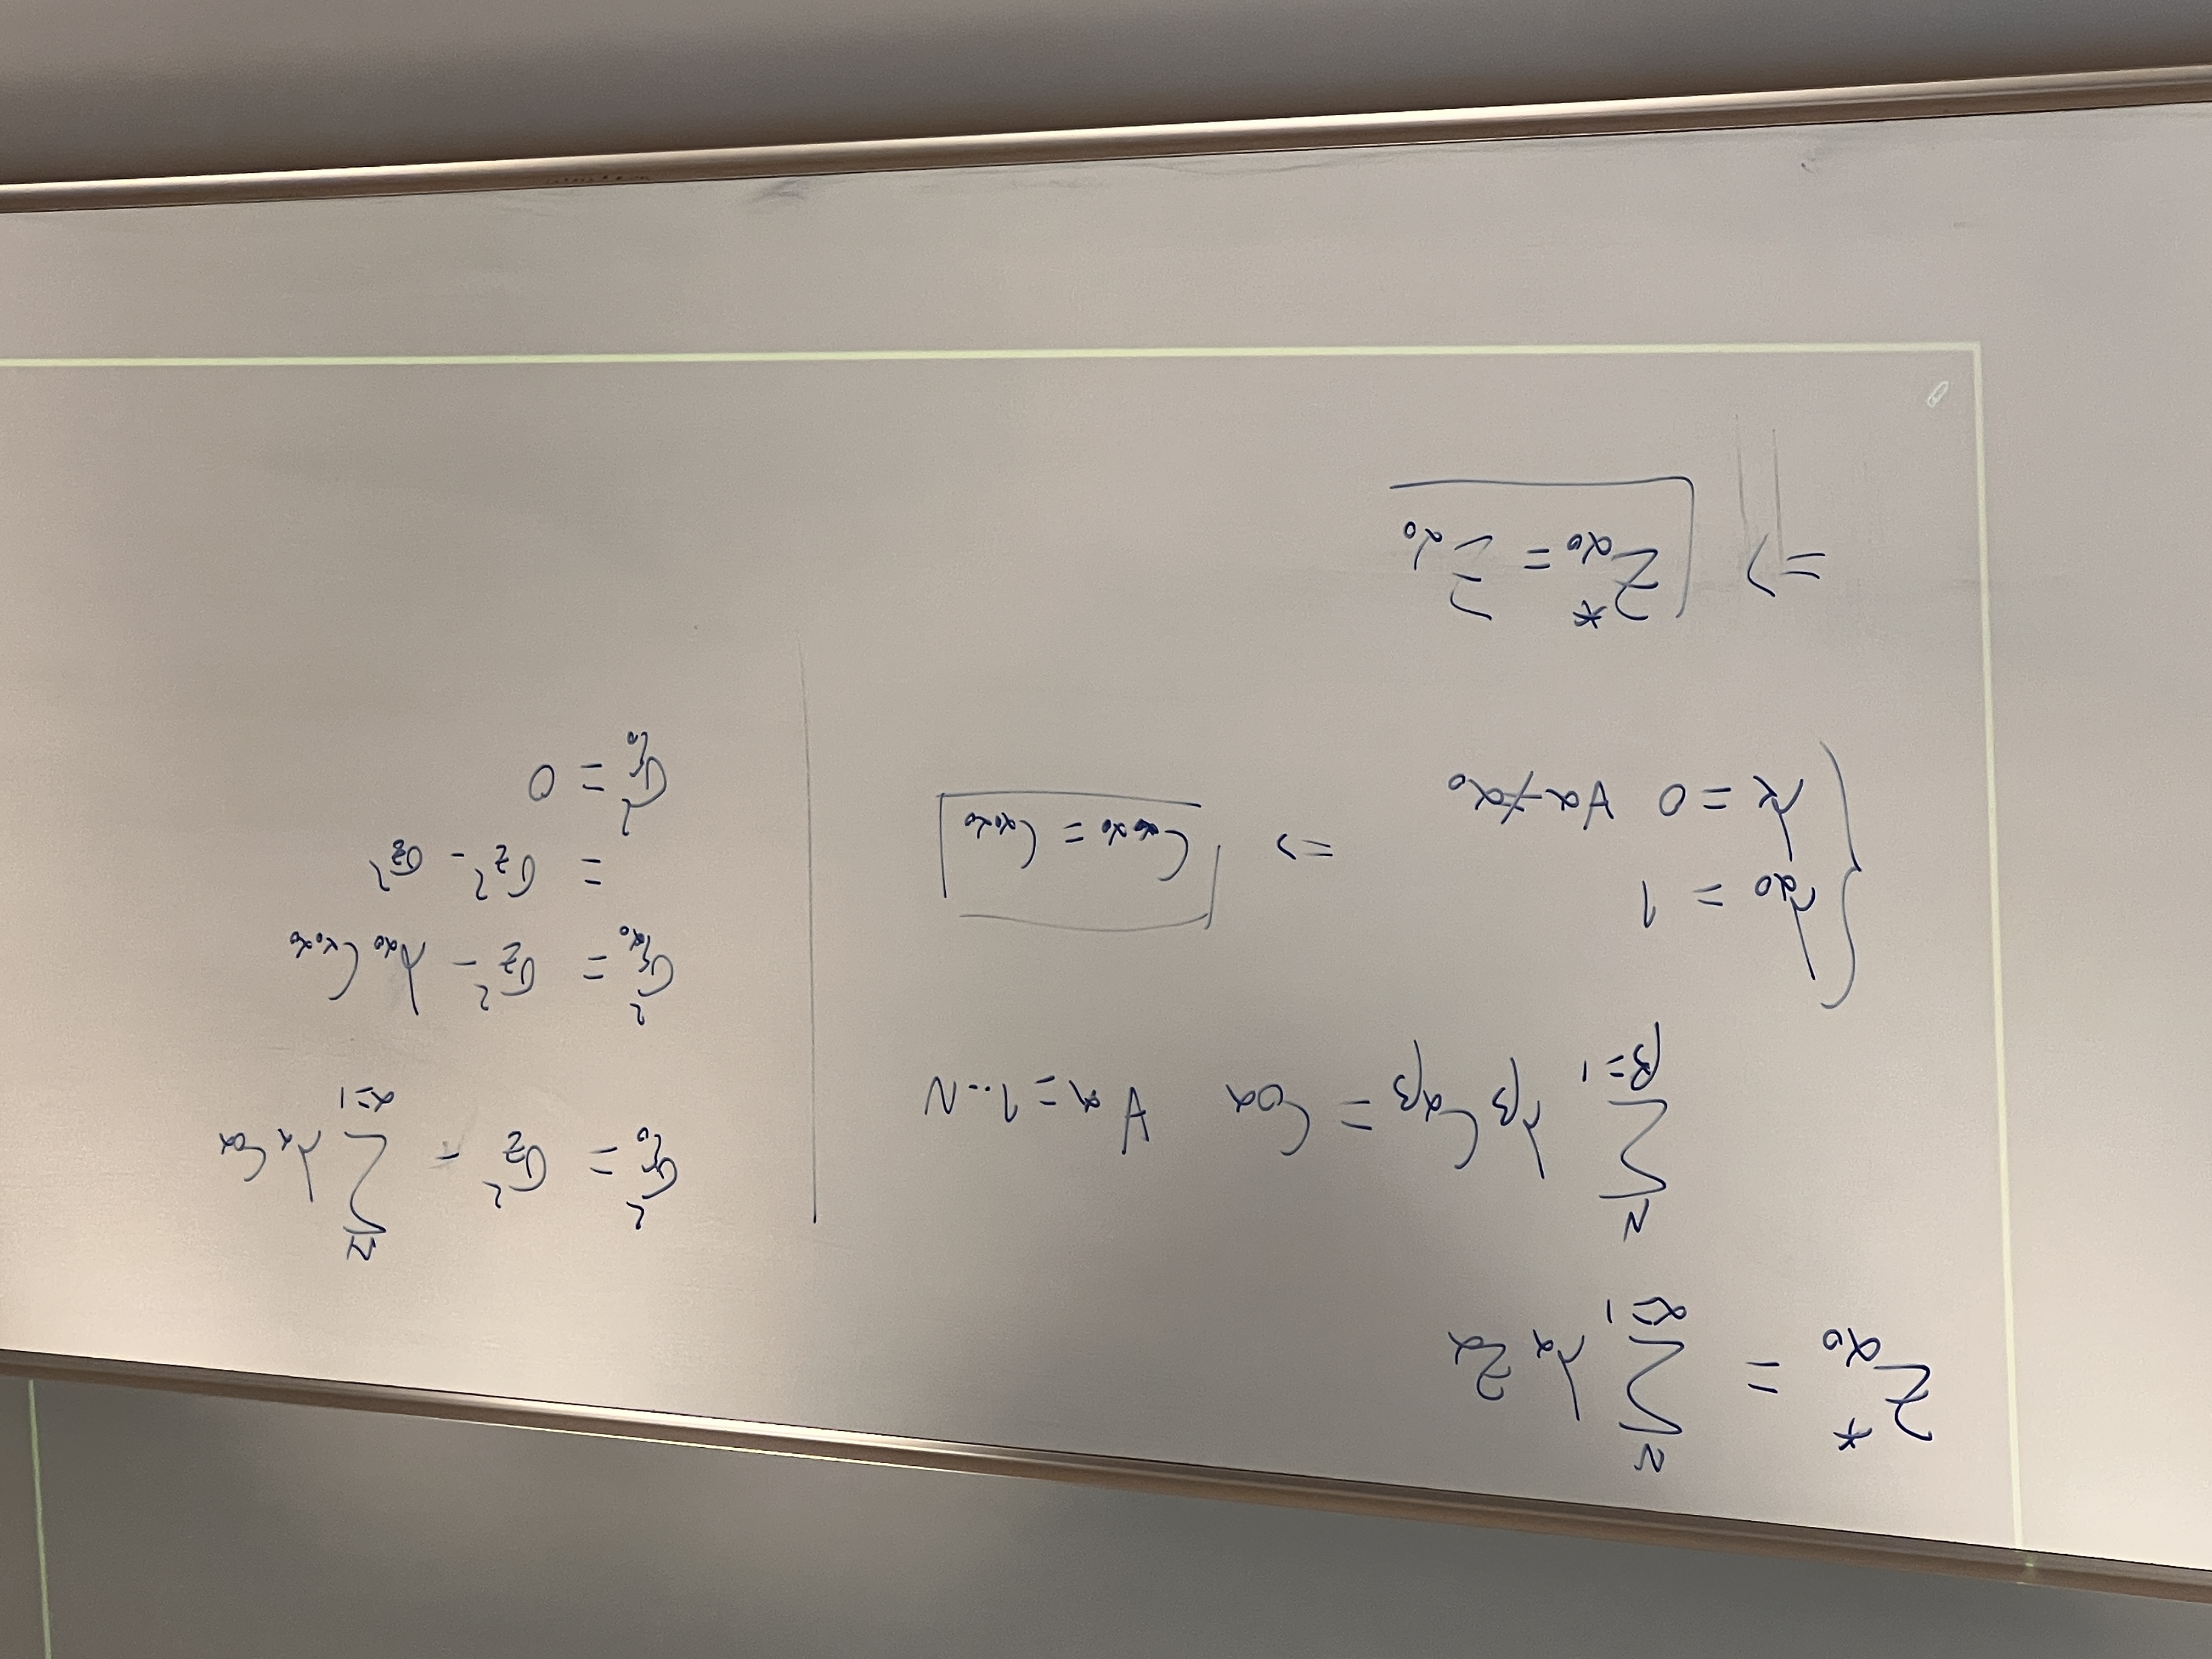 Z*_{α0} = Σ_{α=1}^{N} λ_α Z_α
Σ_{β=1}^{N} λ_β C_{αβ} = C_{0α} ∀ α = 1...N
{ λ_{α0} = 1
λ_α = 0 ∀α≠α0
=> C_{α0α0} = C_{α0α0}
=> Z*_{α0} = Z_{α0}
σ²_{r0} = σ²_Z - Σ_{α=1}^{N} λ_α C_{0α}
σ²_{rα0} = σ²_Z - λ_{α0} C_{α0α0}
= σ²_Z - σ²_Z
σ²_{r0} = 0